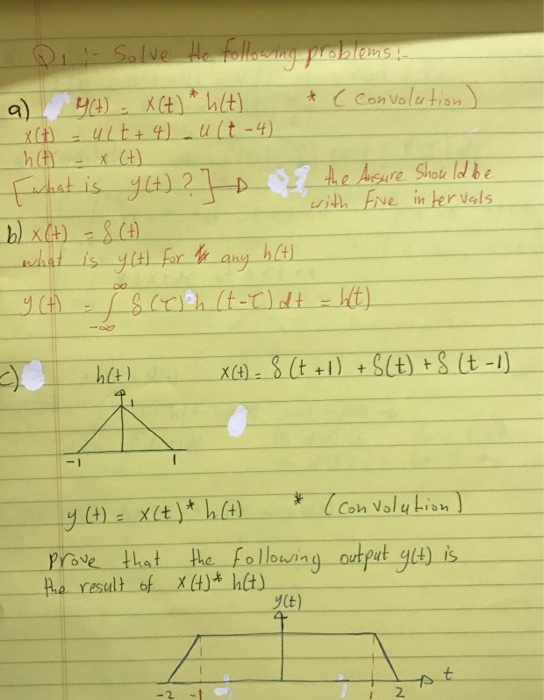 Q1 :- Solve the following problems:-
a) y(t) = x(t) * h(t)    * (convolution)
x(t) = u(t+4) - u(t-4)
h(t) = x(t)
[what is y(t)?] → the Ansure Should be
with Five intervals
b) x(t) = δ(t)
what is y(t) for any h(t)
y(t) = ∫_{-∞}^{∞} δ(τ) h(t-τ) dt = h(t)
c) h(t)    x(t) = δ(t+1) + δ(t) + δ(t-1)
1
-1    1
y(t) = x(t) * h(t)    * (convolution)
prove that the following output y(t) is
the result of x(t) * h(t)
y(t)
t
-2    -1    1    2